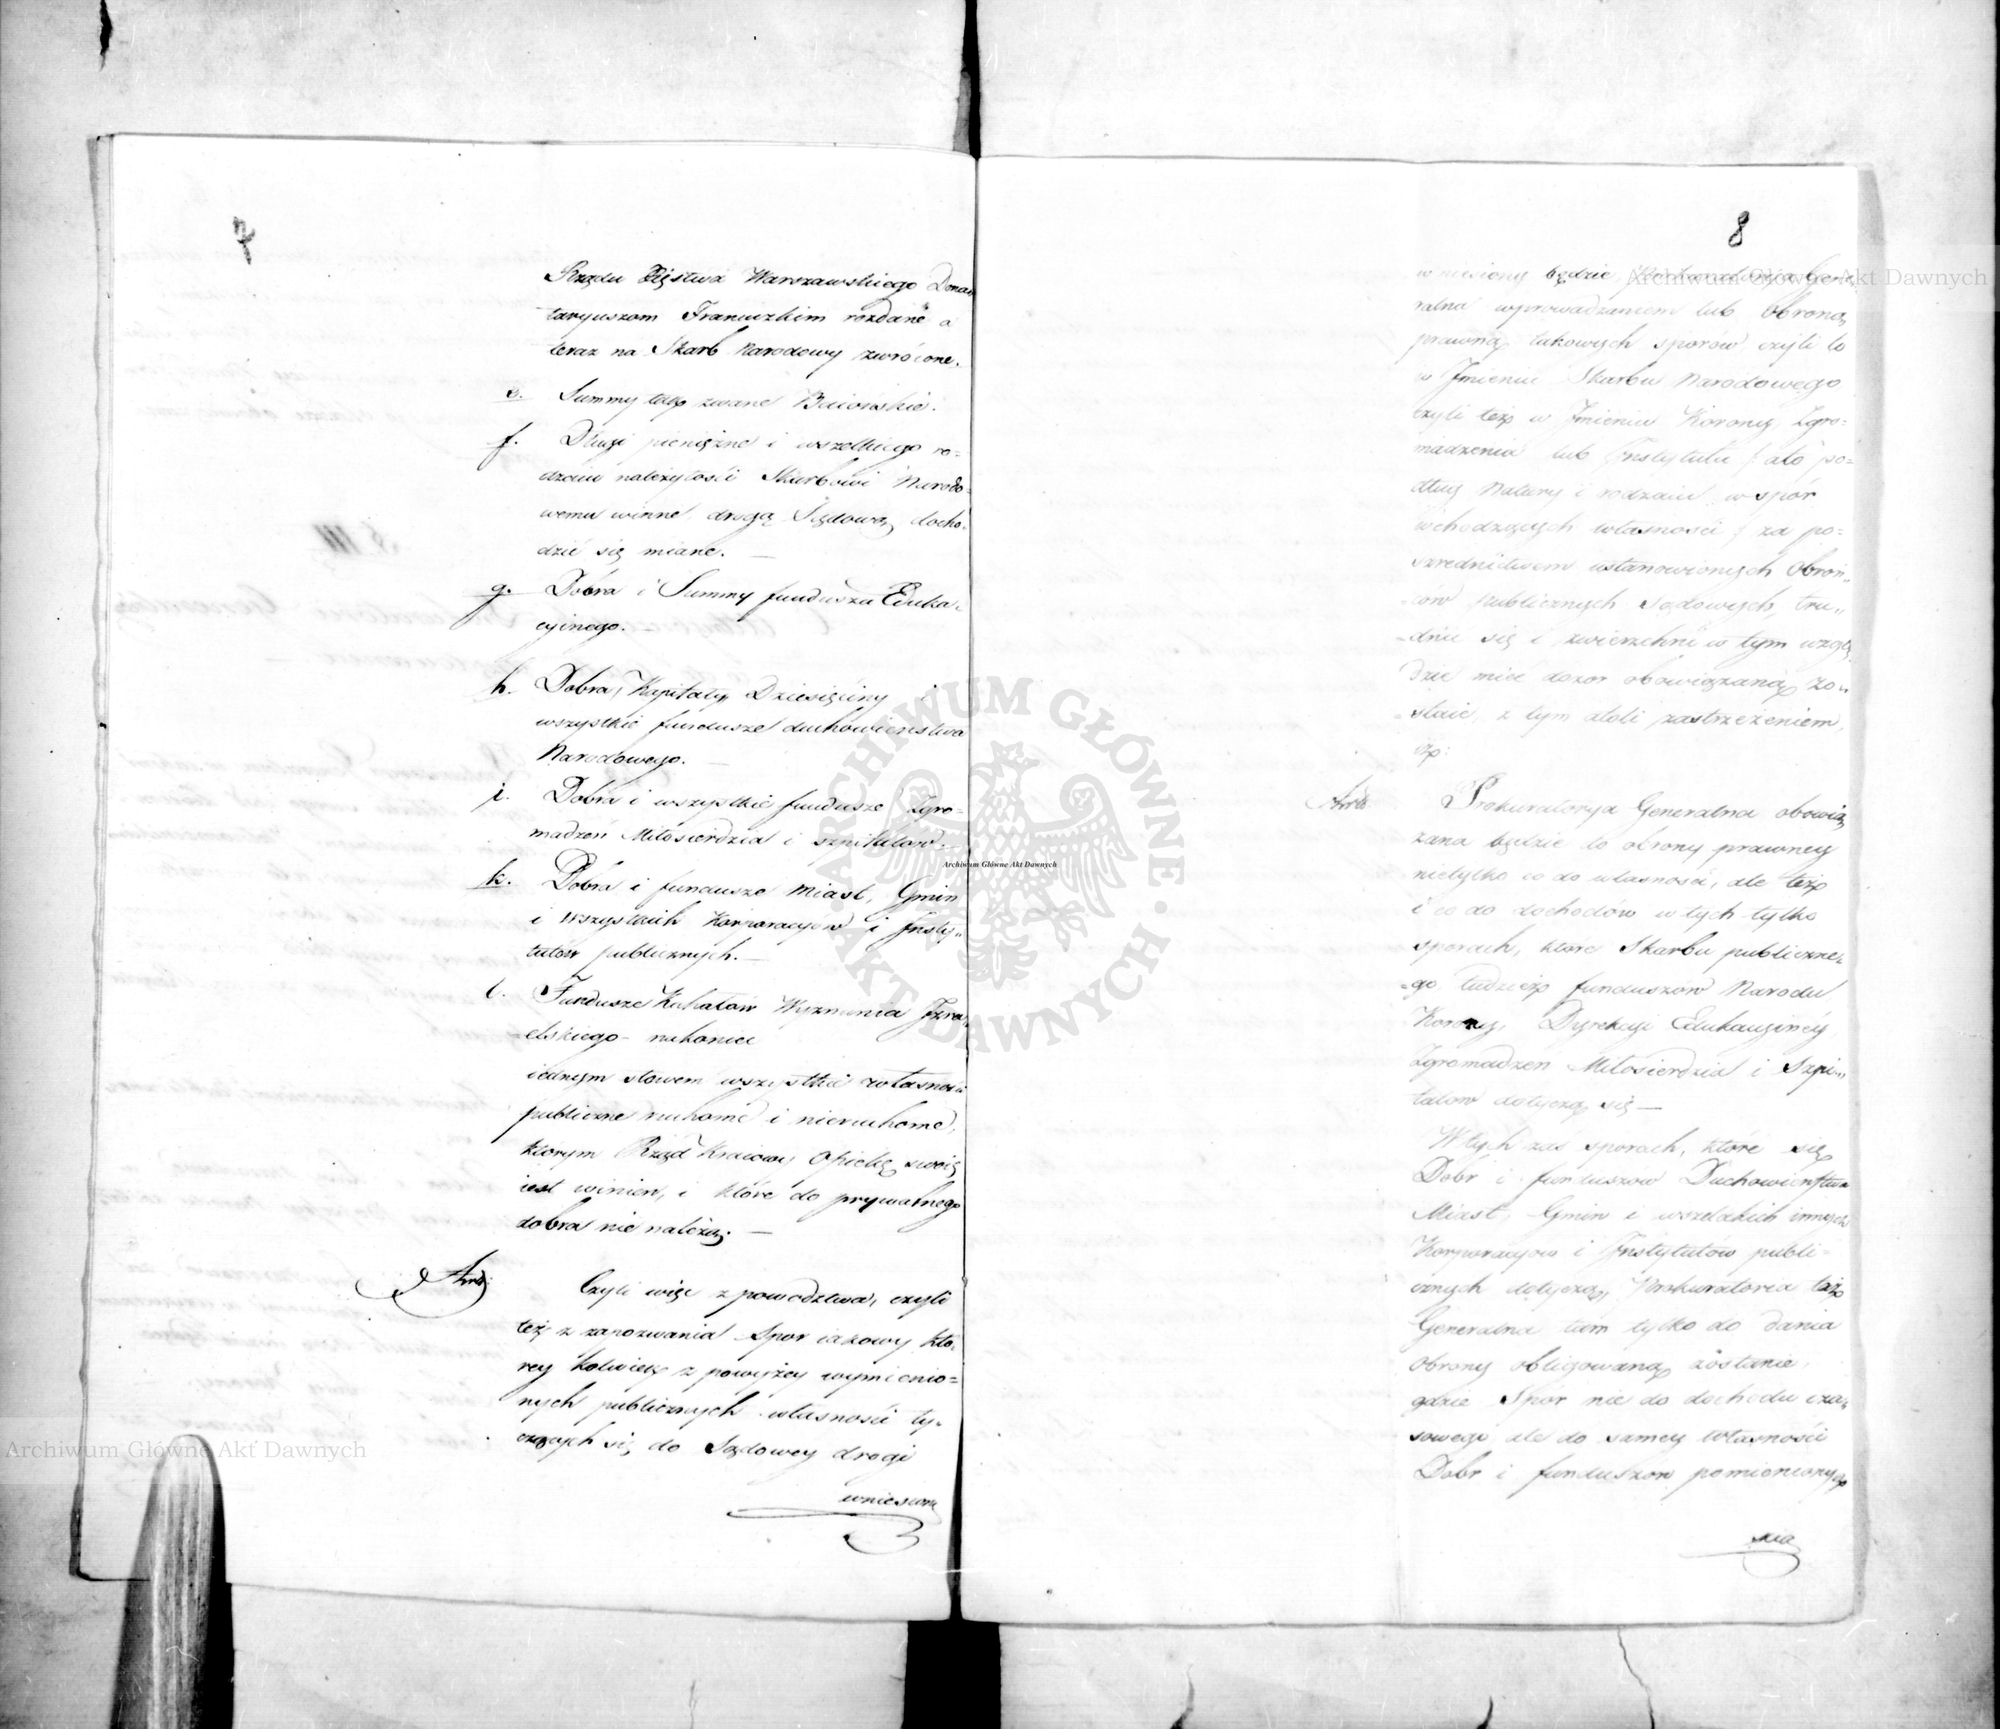 7
Rządu Xięstwa Warszawskiego Dona-
taryuszom Francuzkim rozdane a
teraz na Skarb Narodowy zwrócone.
e. Summy tak zwane Baiońskie.
f. Długi pieniężne i wszelkiego ro-
dzaiu należytości Skarbowi Narodo-
wemu winne, drogą Sądową docho-
dzić się miane. —
g. Dobra i Summy funduszu Eduka-
cyinego.
h. Dobra, Kapitały, Dziesięciny i
wszystkie fundusze duchowieństwa
Narodowego. —
i. Dobra i wszystkie fundusze Zgro-
madzeń Miłosierdzia i szpitalów. —
k. Dobra i fundusze Miast, Gmin
i wszystkich Korporacyow i Insty-
tutów publicznych. —
l. Fundusze Kahałów Wyznania Izra-
elskiego — nakoniec
iednym słowem wszystkie własności
publiczne ruchome i nieruchome,
którym Rząd Kraiowy Opiekę swoią
iest winien, i które do prywatnego
dobra nie należą. —
Czyli więc z powodztwa, czyli
też z zapozwania Spor iakowy któ-
rey kolwiek z powyżey wymienio-
nych publicznych własności ty-
czących się do Sądowey drogi
wniesiony
8
wniesiony będzie, Prokuratorya Gene-
ralna wyprowadzaniem lub Obroną
prawną takowych sporow czyli to
w Imieniu Skarbu Narodowego
czyli też w Imieniu Korony, Zgro-
madzenia lub Instytutu / ato po-
dług Natury i rodzaiu w spór
wchodzących własności / za po-
srednictwem ustanowionych Obroń-
-cow publicznych Sądowych, tru-
-dnić się i zwierzchni w tym wzglę-
dzie mieć dozor obowiązaną zo-
-staie, z tym atoli zastrzeżeniem,
iż:
Prokuratorya Generalna obowią-
zana będzie do obrony prawney
nietylko co do własności, ale też
i co do dochodów w tych tylko
sporach, które Skarbu publiczne-
-go tudzież funduszow Narodu
Korony, Dyrekcyi Edukacyiney
Zgromadzeń Miłosierdzia i Szpi-
talow dotyczą się —
W tych zaś sporach, które się
Dobr i funduszow Duchowieństwa
Miast, Gmin i wszelakich innych
Korporacyow i Instytutów publi-
cznych dotyczą, Prokuratoria taż
Generalna tam tylko do dania
Obrony obligowaną zostanie,
gdzie Spor nie do dochodu cza-
sowego ale do samey własności
Dobr i funduszow pomienionych
Archiwum Główne Akt Dawnych
Archiwum Główne Akt Dawnych
Archiwum Główne Akt Dawnych
ARCHIWUM GŁÓWNE · AKT DAWNYCH ·